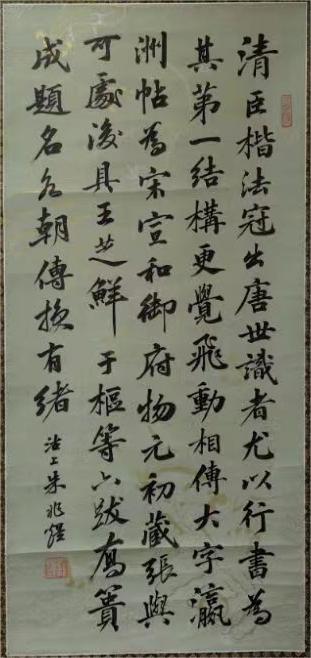 清臣楷法冠出唐世識者尤以行書為
其第一結構更覺飛動相傳大字瀛
洲帖為宋宣和御府物元初藏張與
可處後具王芝鮮于樞等六跋喬簣
成題名朝傳授有緒
沽上朱兆